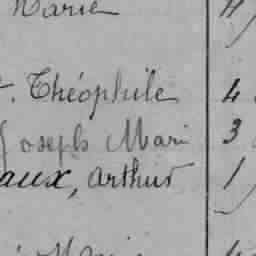 Marie
t. Théophile 4
Joseph Mari 3
aux, Arthur 1